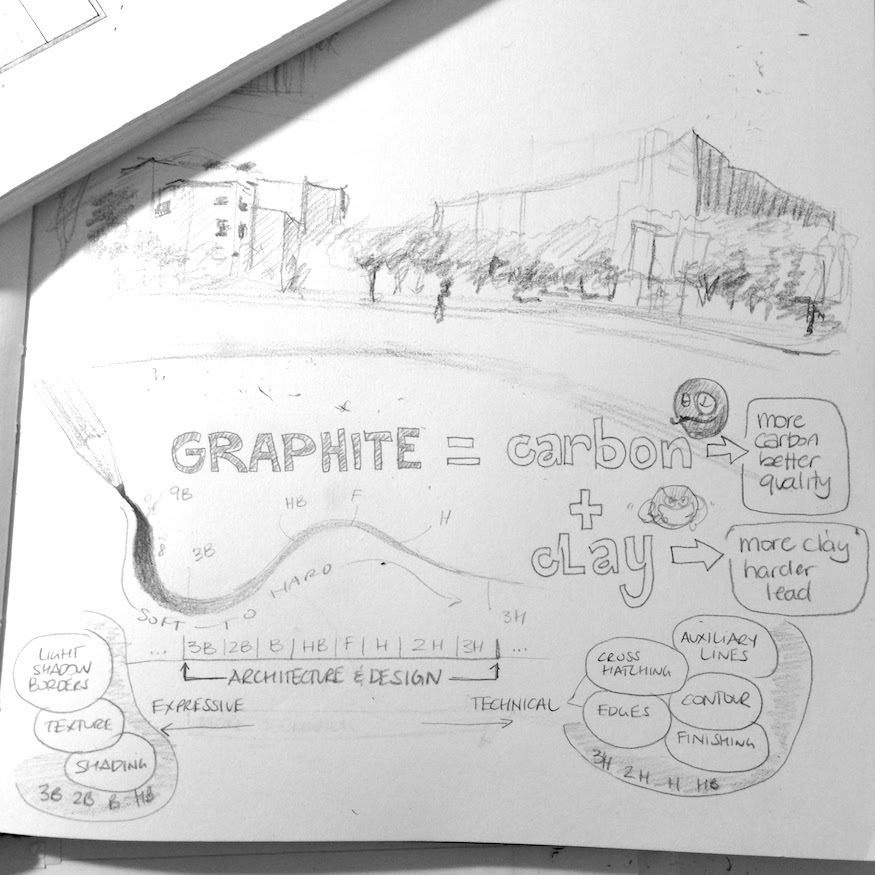 GRAPHITE = carbon
+
CLAY
more
carbon
better
quality
more clay
harder
lead
9B
8
3B
HB
F
H
3H
SOFT TO HARD
... 3B | 2B | B | HB | F | H | 2H | 3H ...
ARCHITECTURE & DESIGN
EXPRESSIVE
TECHNICAL
LIGHT
SHADOW
BORDERS
TEXTURE
SHADING
3B 2B B HB
AUXILIARY
LINES
CROSS
HATCHING
CONTOUR
EDGES
FINISHING
3H 2H H HB